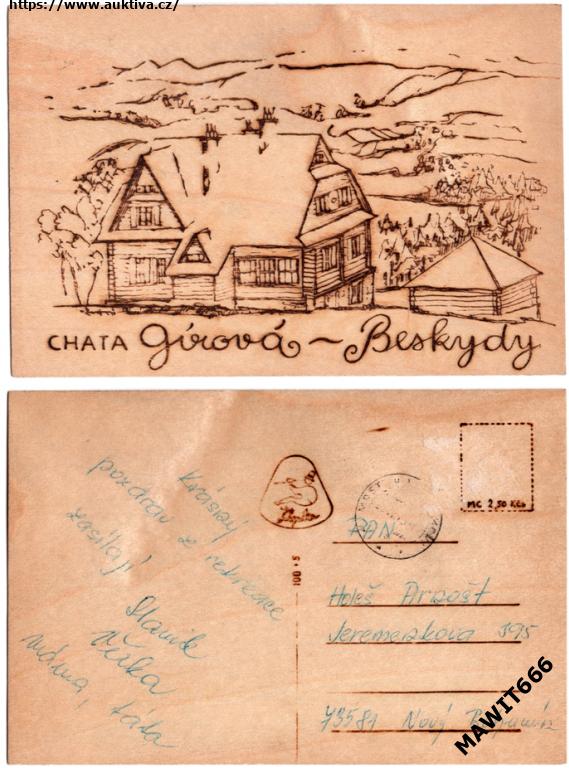 https://www.auktiva.cz/
CHATA Gírová ~ Beskydy
MC 2,50 Kčs
Krásný
pozdrav z rekreace
zasílají
Slávik
Věrka
máma, táta
100 +S
PAN
Holeš Arnošt
Jeremenkova 395
73581 Nový Bohumín
MAWIT666